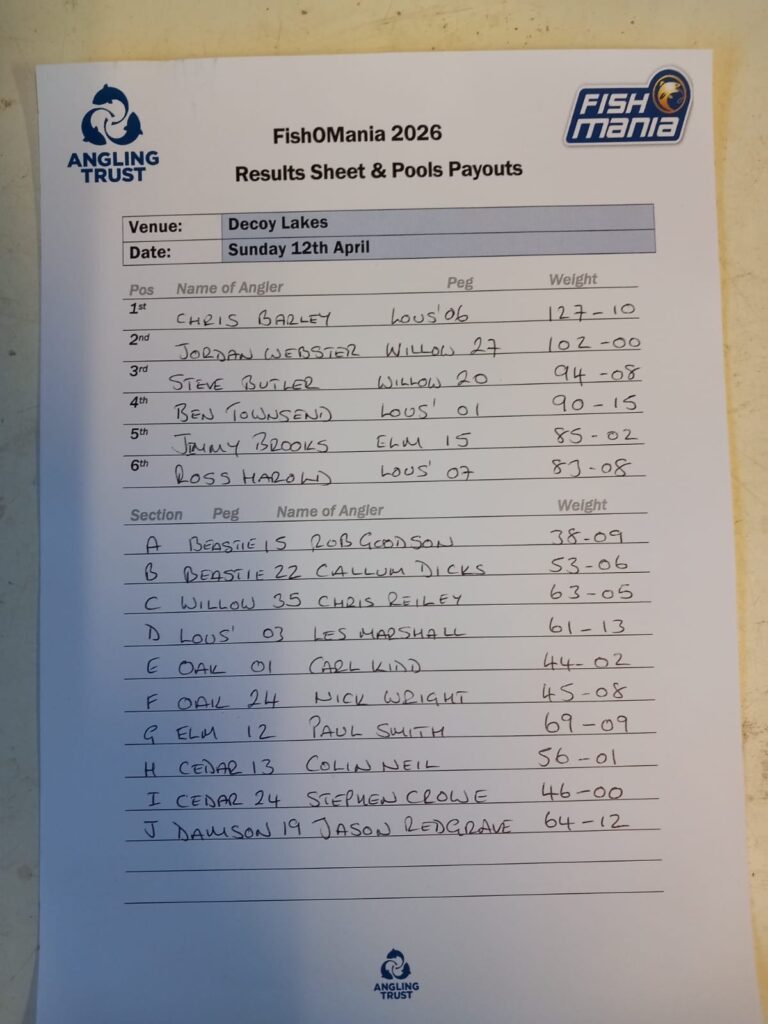 ANGLING
TRUST
FISH
MANIA
FishOMania 2026
Results Sheet & Pools Payouts
Venue: Decoy Lakes
Date: Sunday 12th April
Pos Name of Angler Peg Weight
1st CHRIS BARLEY LOUS' 06 127-10
2nd JORDAN WEBSTER WILLOW 27 102-00
3rd STEVE BUTLER WILLOW 20 94-08
4th BEN TOWNSEND LOUS' 01 90-15
5th JIMMY BROOKS ELM 15 85-02
6th ROSS HAROLD LOUS' 07 83-08
Section Peg Name of Angler Weight
A BEASTIE 15 ROB GOODSON 38-09
B BEASTIE 22 CALLUM DICKS 53-06
C WILLOW 35 CHRIS REILEY 63-05
D LOUS' 03 LES MARSHALL 61-13
E OAK 01 CARL KIDD 44-02
F OAK 24 NICK WRIGHT 45-08
G ELM 12 PAUL SMITH 69-09
H CEDAR 13 COLIN NEIL 56-01
I CEDAR 24 STEPHEN CROWE 46-00
J DAMSON 19 JASON REDGRAVE 64-12
ANGLING
TRUST